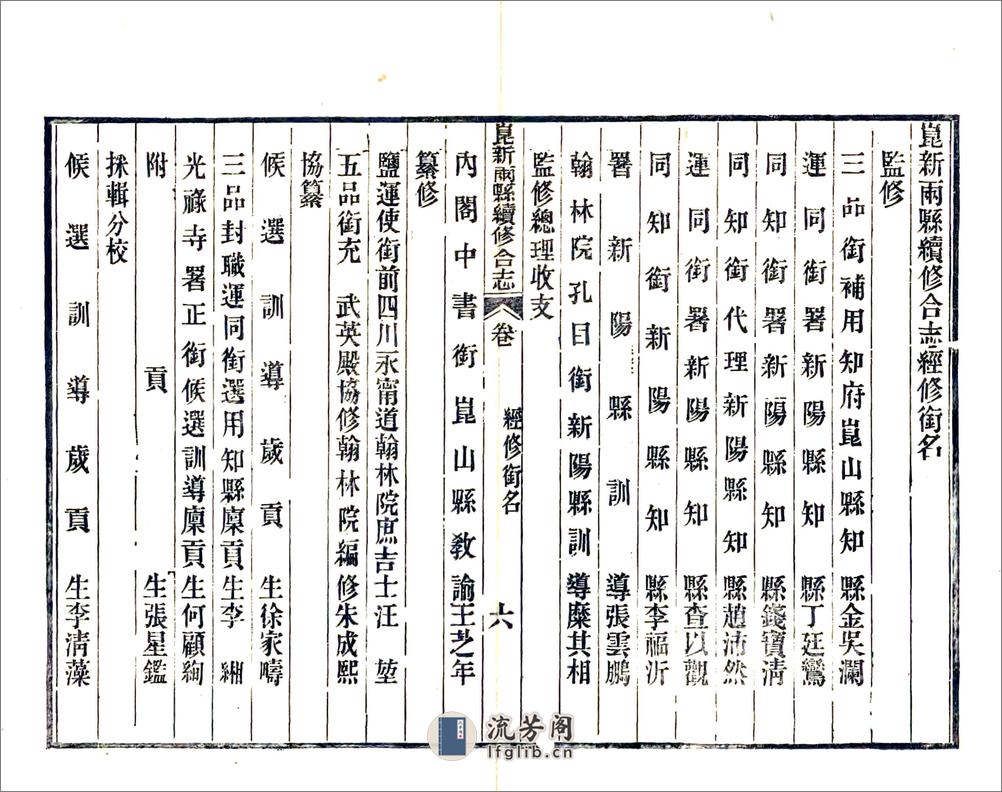 崑新兩縣續修合志經修銜名
監修
三品銜補用知府崑山縣知縣金吳瀾
運同銜署新陽縣知縣丁廷鸞
同知銜署新陽縣知縣錢寶清
同知銜代理新陽縣知縣趙沛然
運同銜署新陽縣知縣查以觀
同知銜新陽縣知縣李福沂
署新陽縣訓導張雲鵬
翰林院孔目銜新陽縣訓導糜其相
監修總理收支
崑新兩縣續修合志 卷 經修銜名 六
內閣中書銜崑山縣敎諭王芝年
纂修
鹽運使銜前四川永甯道翰林院庶吉士汪堃
五品銜充 武英殿協修翰林院編修朱成熙
協纂
候選訓導歲貢生徐家疇
三品封職運同銜選用知縣廩貢生李緗
光祿寺署正銜候選訓導廩貢生何顧絢
附貢生張星鑑
採輯分校
候選訓導歲貢生李淸藻
流芳阁
lfglib.cn